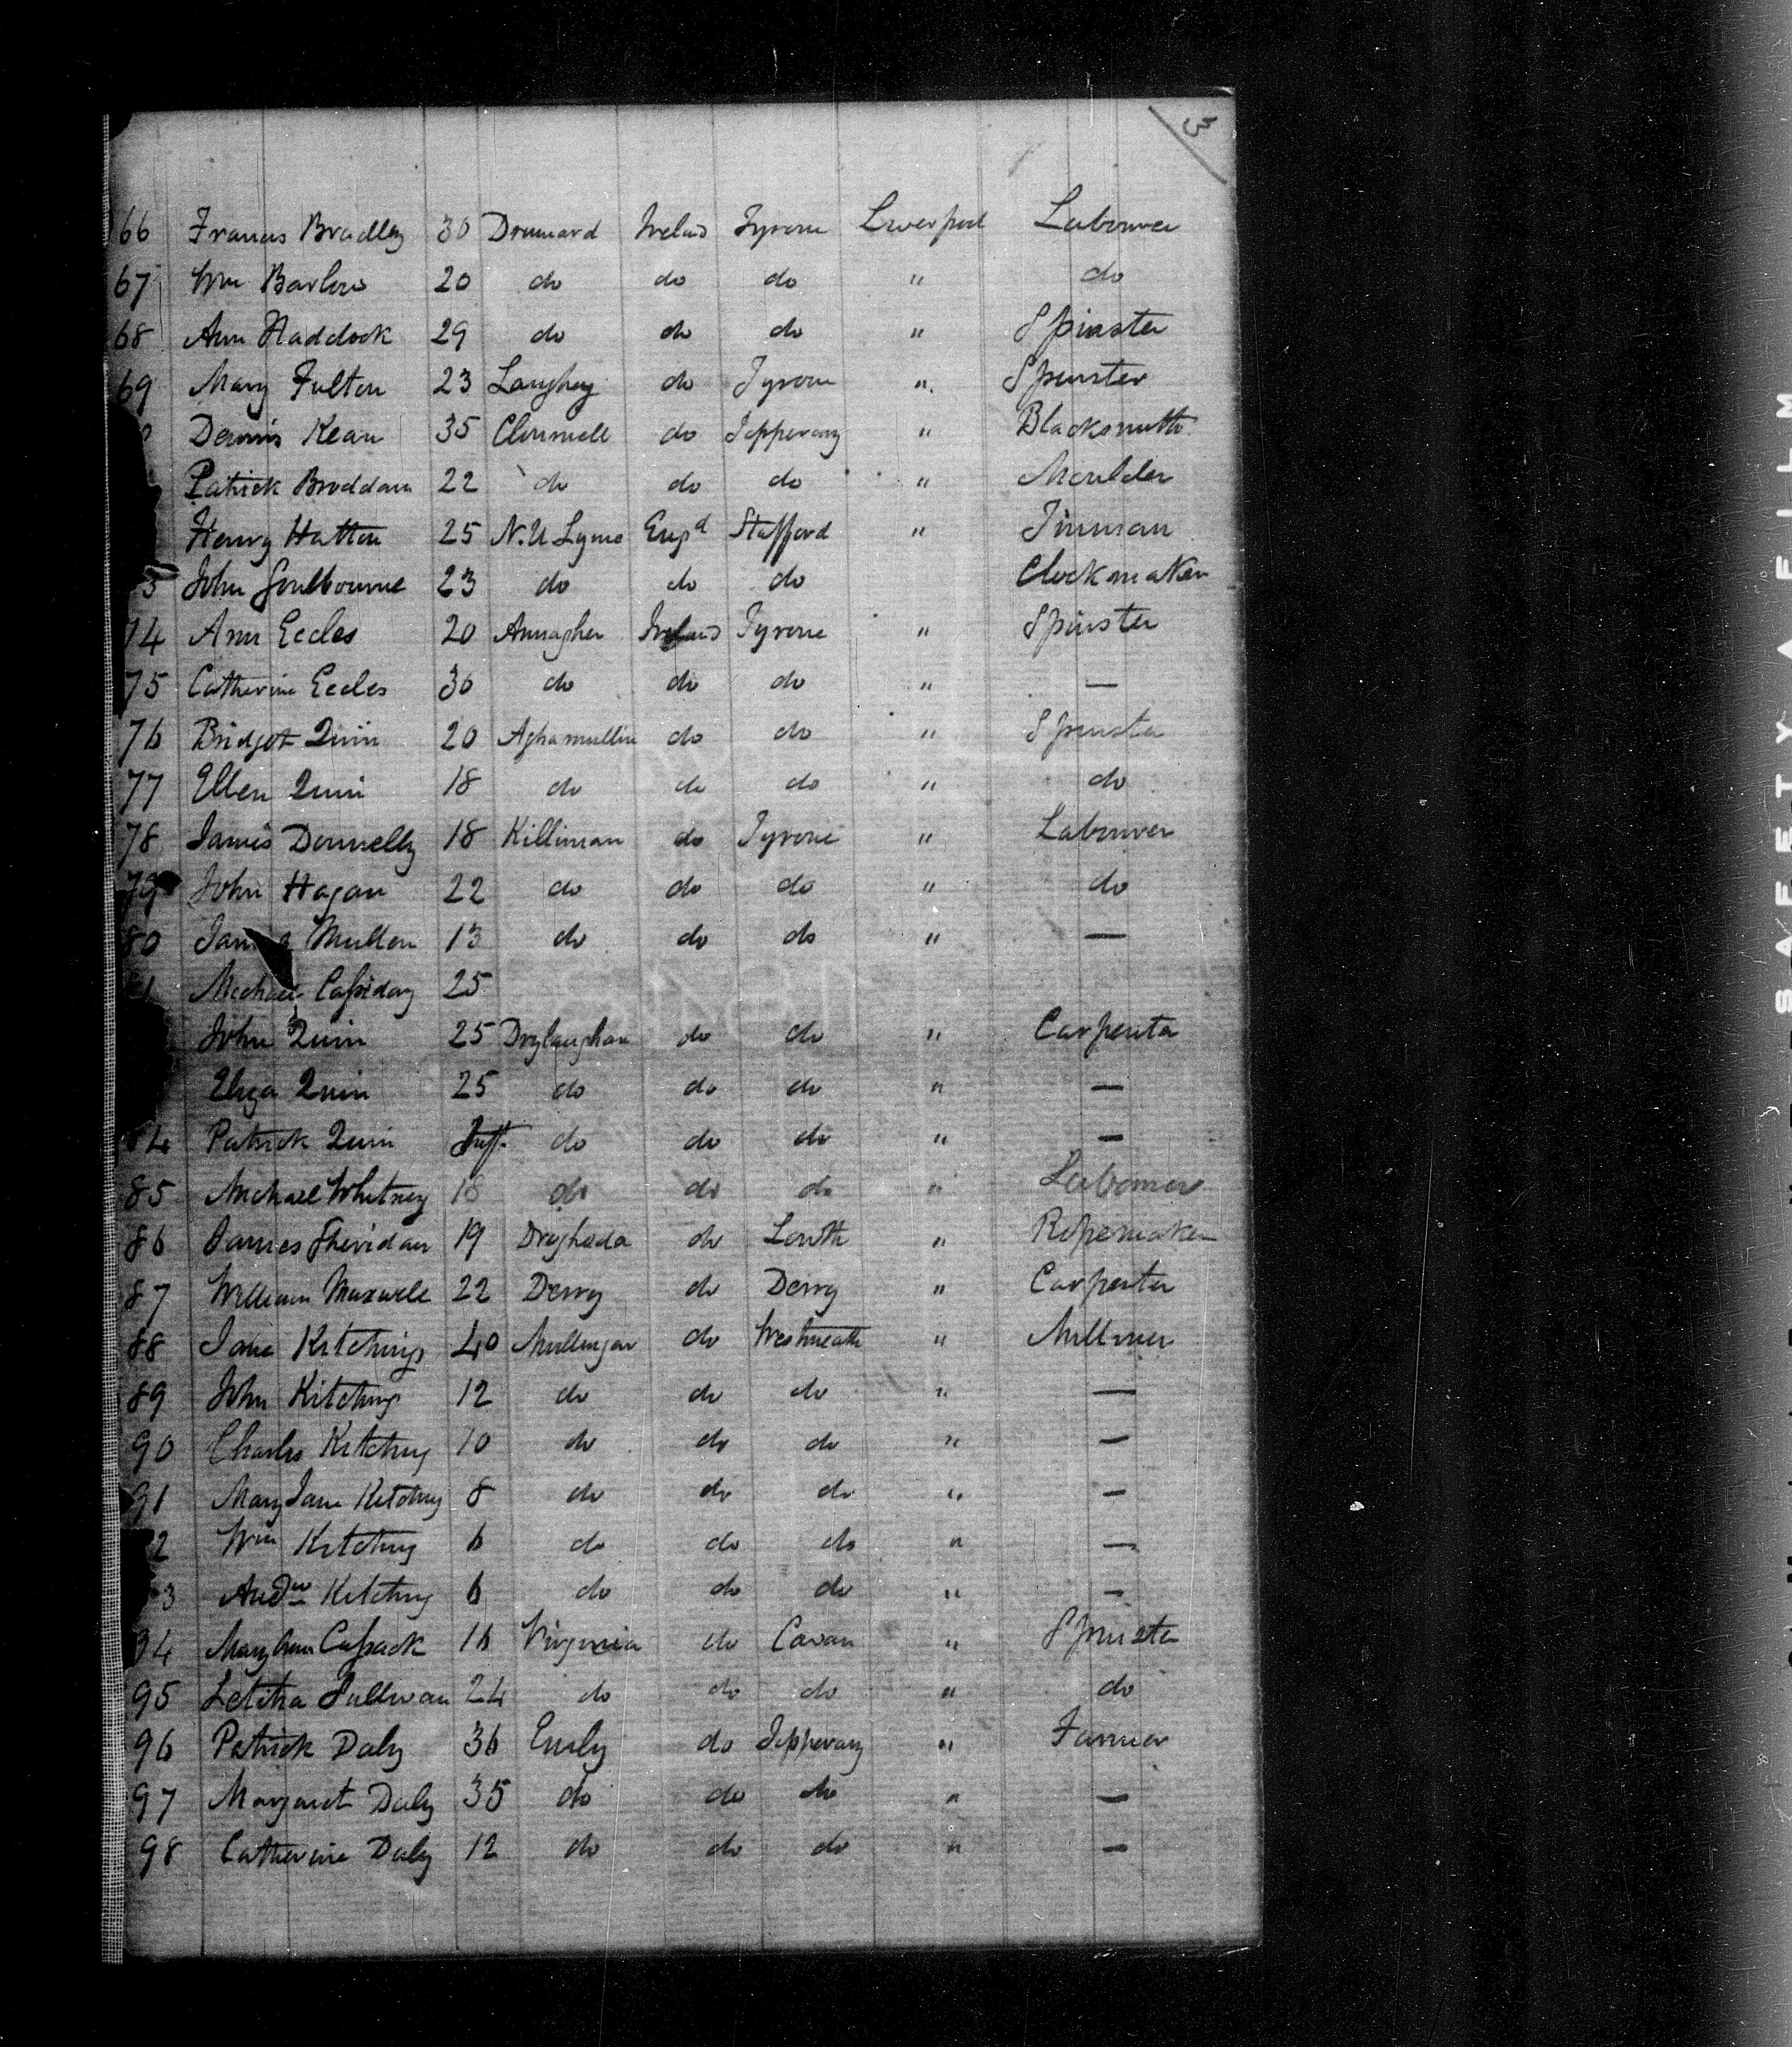 3
66 Francis Bradley 30 Drumard Ireland Tyrone Liverpool Labourer
67 Wm Barlow 20 do do do " do
68 Ann Haddock 29 do do do " Spinster
69 Mary Fulton 23 Loughry do Tyrone " Spinster
Dennis Kean 35 Clonmell do Tipperary " Blacksmith
Patrick Broddan 22 do do do " Moulder
Henry Hatton 25 N. U Lyme Engd Stafford " Tinman
3 John Goulbourne 23 do do do Clockmaker
74 Ann Eccles 20 Annagher Ireland Tyrone " Spinster
75 Catherine Eccles 30 do do do " —
76 Bridget Quin 20 Aghamullin do do " Spinster
77 Ellen Quin 18 do do do " do
78 James Donnelly 18 Killiman do Tyrone " Labourer
79 John Hagan 22 do do do " do
80 Mullen 13 do do do " —
1 Michael Cassiday 25
John Quin 25 Drylaughan do do " Carpenter
Eliza Quin 25 do do do " —
84 Patrick Quin Inft do do do " —
85 Michael Whitney 18 do do do " Labourer
86 James Sheridan 19 Drogheda do Louth " Ropemaker
87 William Maxwell 22 Derry do Derry " Carpenter
88 Jane Kitchings 40 Mullingar do Westmeath " Milliner
89 John Kitching 12 do do do " —
90 Charles Kitching 10 do do do " —
91 Mary Jane Kitching 8 do do do " —
2 Wm Kitching 6 do do do " —
3 Andw Kitching 6 do do do " —
94 Mary Ann Cussack 16 Virginia do Cavan " Spinster
95 Letitia Sullivan 24 do do do " do
96 Patrick Daly 36 Emly do Tipperary " Farmer
97 Margaret Daly 35 do do do " —
98 Catherine Daly 12 do do do " —
SAFETY FILM